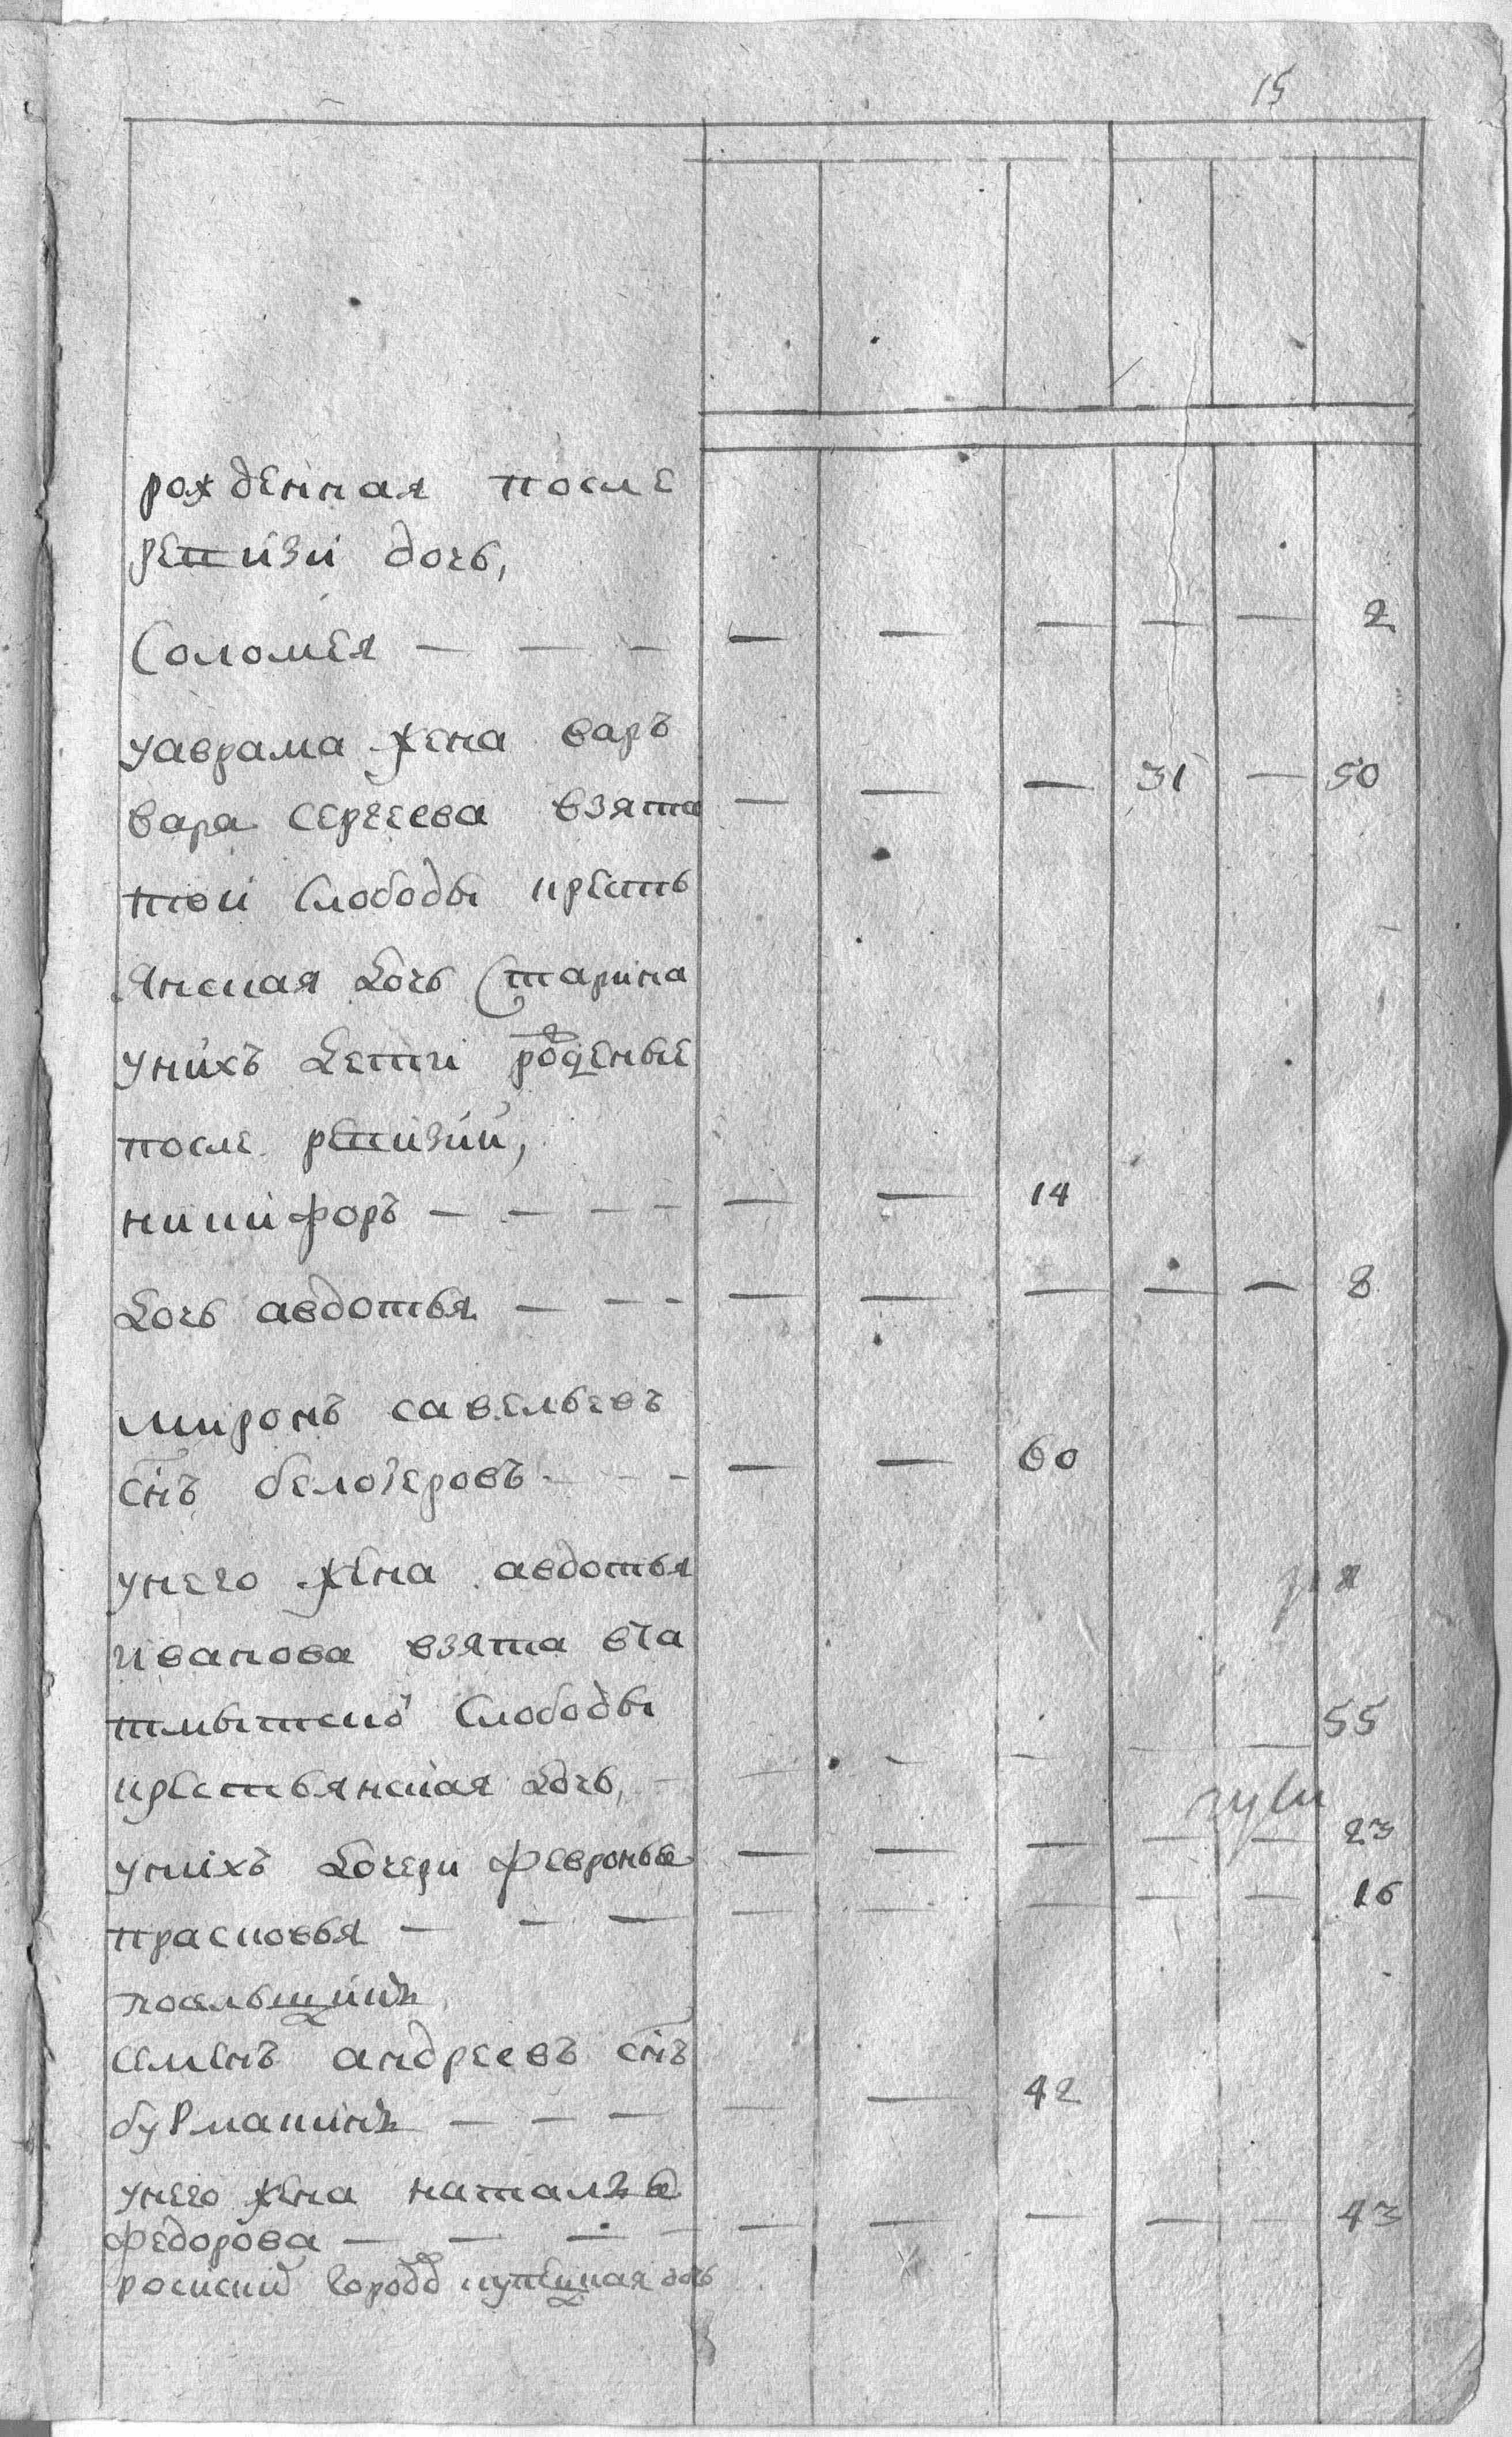 15
рожденная после
ревизи дочь,
Соломея — — — — — — — — 2
уаврама жена варъ
вара сергеева взята — — — 31 — 50
той слободы кресть
янская дочь старика
унихъ дети рожденые
после ревизии,
никифоръ — — — — — — 14
дочь авдотья — — — — — — — — 8
миронъ савельевъ
снъ белозеровъ — — — — — 60
унего жена авдотья
иванова взята
слободы 55
крестьянская дочь, — — — — — —
унихъ дочери февронья — — — — — 23
прасковья — — — — — — — — 16
посельщикъ
семенъ андреевъ снъ
бурмакинъ — — — — — 42
унего жена наталья
федорова — — — — — — — — — 43
дочь